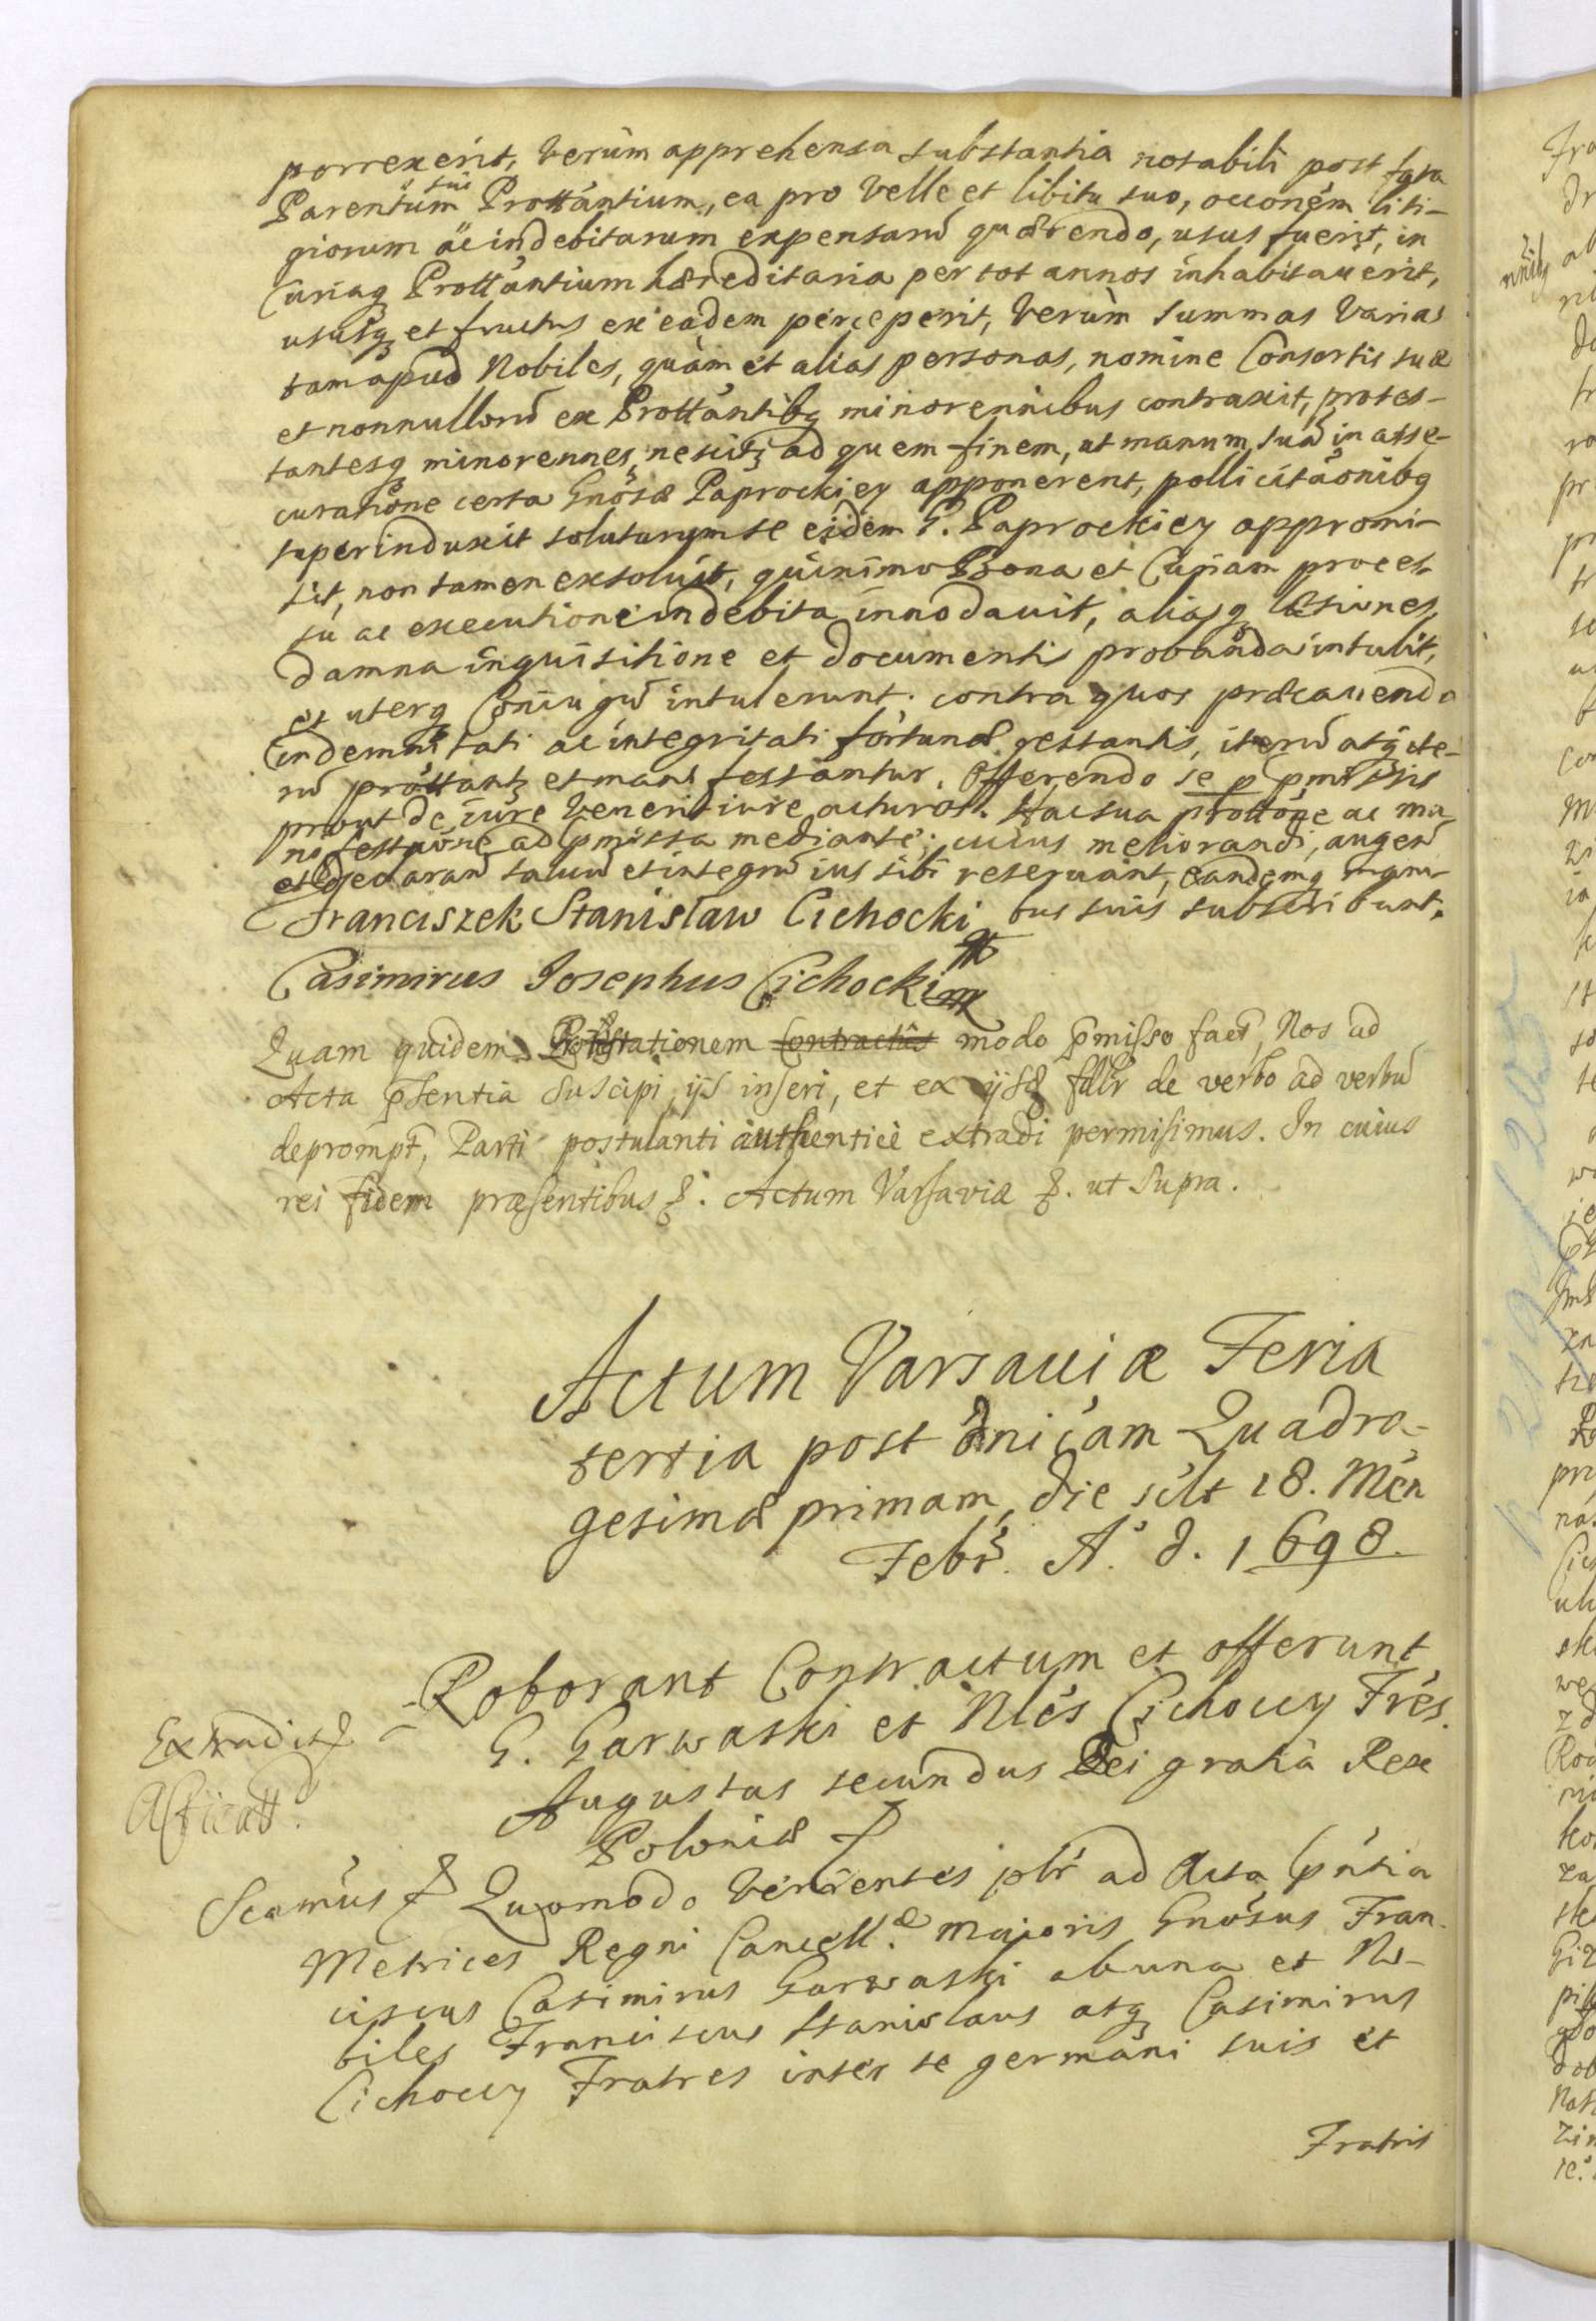 porrexerit, verùm apprehensa substantia notabili post fata
Parentum sui Prottantium, ea pro velle et libitu suo, occõnem liti-
giorum ac indebitarum expensarũ quærendo, usus fuerit, in
Curiaq Prottantium hæreditaria per tot annos inhabitauerit,
ususq et fructus ex eadem perceperit, verùm summas varias
tam apud Nobiles, quàm et alias personas, nomine Consortis suæ
et nonnullorũ ex Prottantibq minorennibus contraxit, protes-
tantesq minorennes, nescitz ad quem finem, ut manum suã in asse-
curatione certa Gnosæ Paprockiey apponerent, pollicitaõnibq
superinduxit soluturum se eidem G. Paprockiey appromi-
sit, non tamen exsoluit, quinimo Bona et Curiam proces-
su ac executione indebita innodauit, aliasq læsiones,
damna inquisitione et documentis probanda intulit,
et uterq Coniugũ intulerunt. contra quos præcauendo
indemnitati ac integritati fortunæ restantis, iterũ atq ite-
rũ prottantz et manifestantur. Offerendo se p pmissis
prout de iure venerit iure acturos. Hac sua prottõne ac ma-
nifestaõne ad pmissa mediante; cuius meliorandi, augenđ
et declaranđ saluũ et integrũ ius sibi reseruant, eandemq mani-
Franciszek Stanisław Cichocki bus suis subscribunt.
Casimirus Josephus Cichocki mp
Quam quidem Protestationem Contractus modo pmisso fact, Nos ad
Acta psentia Suscipi, ijs inseri, et ex ijsđ fdlr de verbo ad verbũ
deprompt, Parti postulanti authenticè extradi permisimus. In cuius
rei fidem præsentibus &. Actum Varsaviæ &. ut Supra.
Actum Varsauiæ Feria
tertia post dnicam Quadra-
gesimæ primam, die scilt 18. Men
Febr. A. d. 1698.
Roborant Contractum et offerunt
G. Garwaski et Nles Cichoccy Fres.
Extradit
Augustus secundus Dei gratia Rex
Poloniæ &
Scamus & Quomodo venientes plr ad Acta pntia
Metrices Regni Cancell.æ Majoris Gnosus Fran-
ciscus Casimirus Garwaski abuna et No-
biles Franciscus Stanislaus atq Casimirus
Cichoccy Fratres inter se germani suis et
Fratris